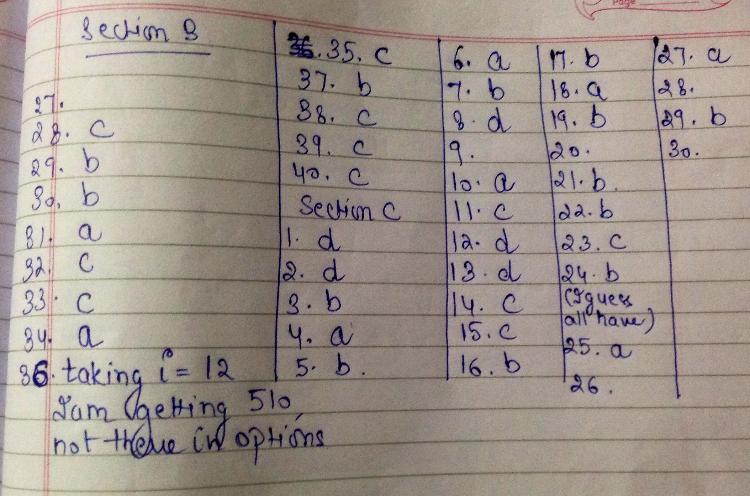 Page
Section B
27.
28. c
29. b
30. b
31. a
32. c
33. c
34. a
36. taking i = 12
I am getting 510
not there in options
35. c
37. b
38. c
39. c
40. c
Section C
1. d
2. d
3. b
4. a
5. b.
6. a
7. b
8. d
9.
10. a
11. c
12. d
13. d
14. c
15. c
16. b
17. b
18. a
19. b
20.
21. b.
22. b
23. c
24. b
(I guess
all have)
25. a
26.
27. a
28.
29. b
30.